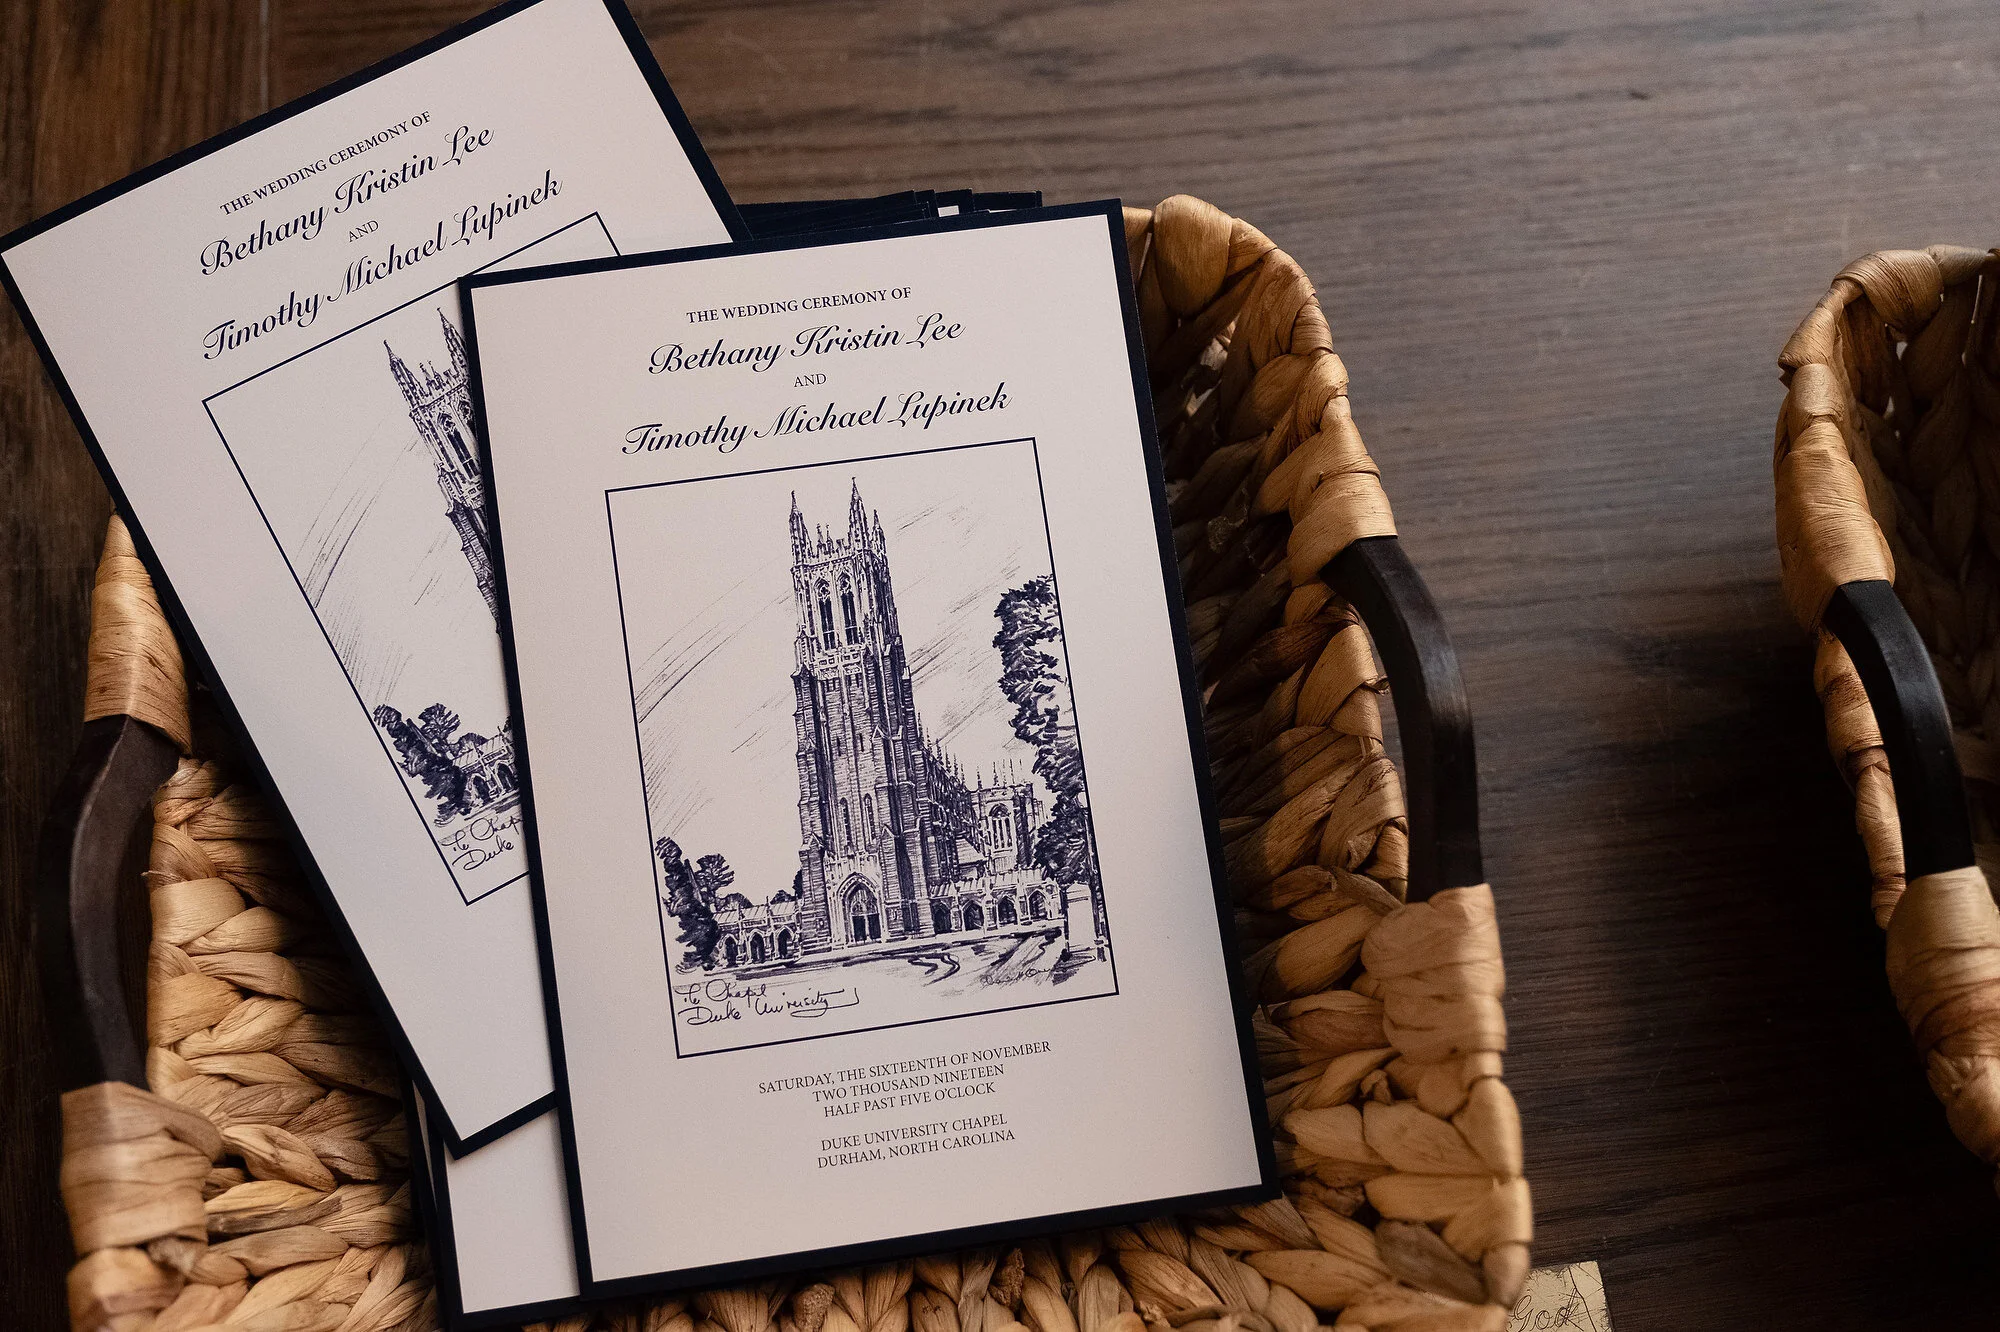 THE WEDDING CEREMONY OF
Bethany Kristin Lee
AND
Timothy Michael Lupinek
The Chap
Duke
THE WEDDING CEREMONY OF
Bethany Kristin Lee
AND
Timothy Michael Lupinek
The Chapel
Duke University
SATURDAY, THE SIXTEENTH OF NOVEMBER
TWO THOUSAND NINETEEN
HALF PAST FIVE O'CLOCK
DUKE UNIVERSITY CHAPEL
DURHAM, NORTH CAROLINA
God